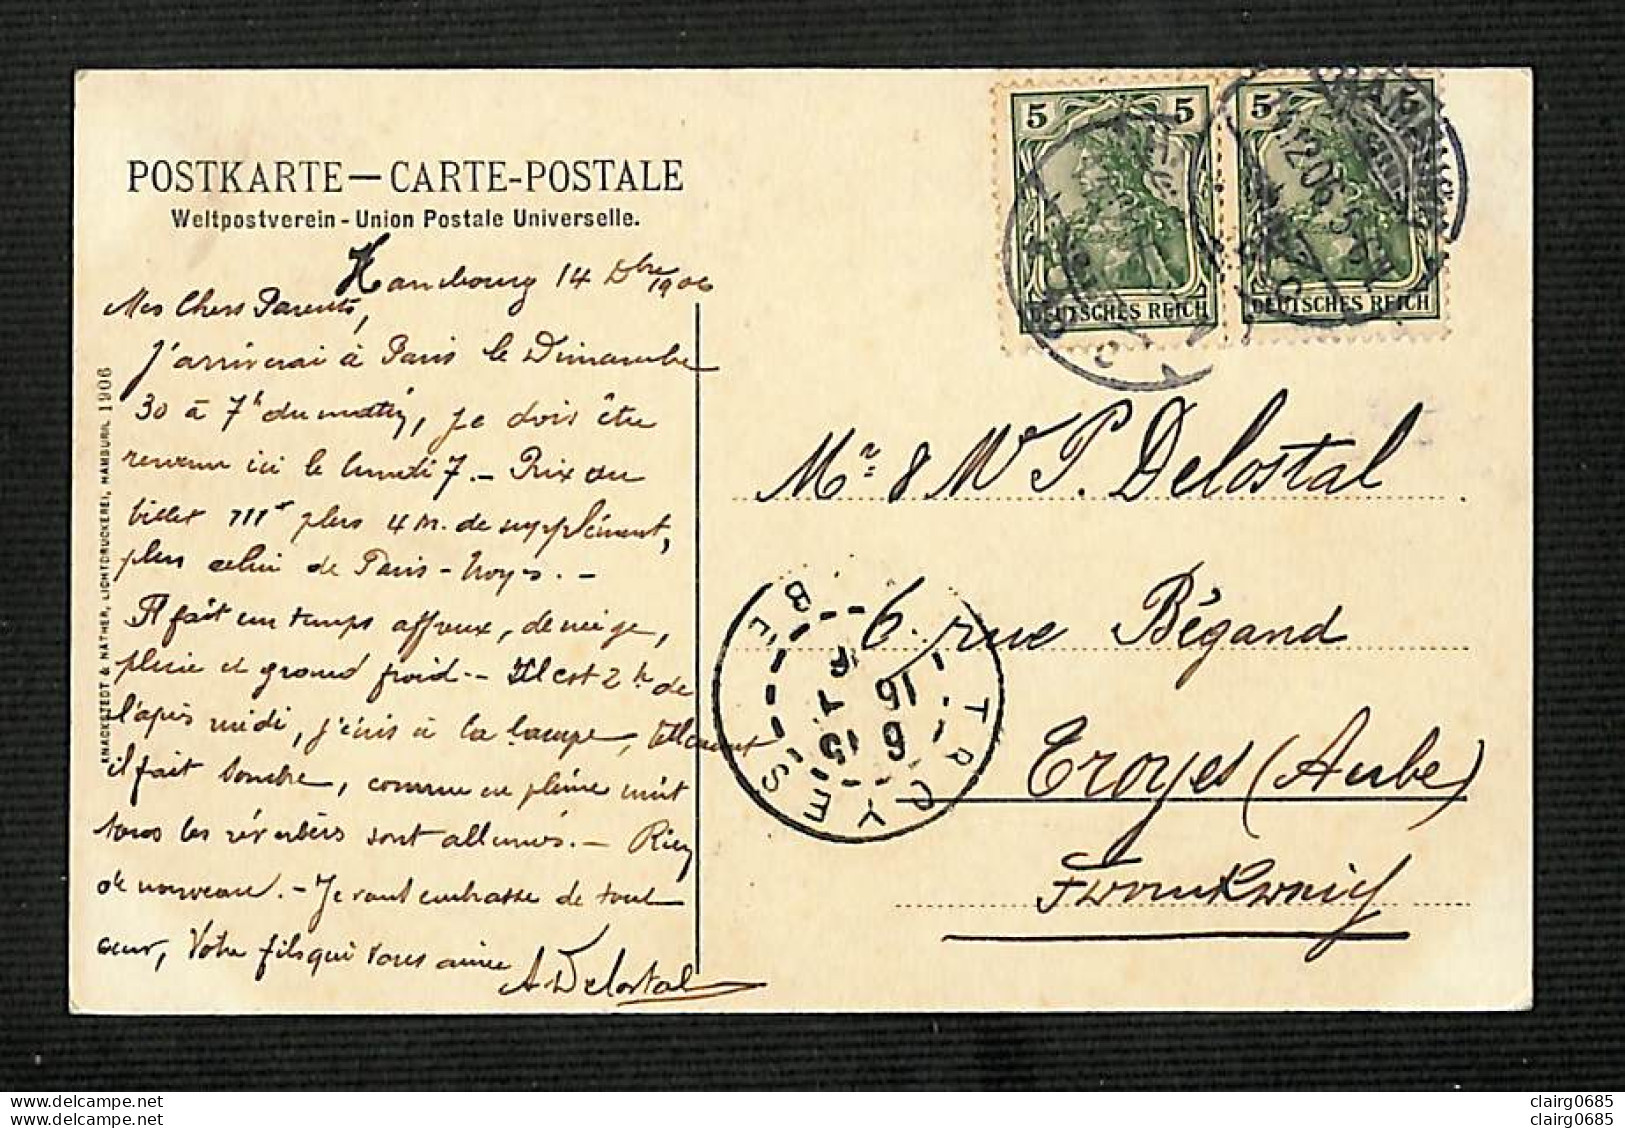 POSTKARTE — CARTE-POSTALE
Weltpostverein - Union Postale Universelle.
Hambourg 14 Dbre 1906
Mes Chers Parents,
J'arriverai à Paris le Dimanche
30 à 7h du matin, je dois être
revenu ici le lundi 7. — Prix du
billet 111f plus 4 m. de supplément,
plus celui de Paris - Troyes. —
Il fait un temps affreux, de neige,
pluie et grand froid. — Il est 2 h de
l'après midi, j'écris à la lampe, tellement
il fait sombre, comme en pleine nuit
tous les réverbères sont allumés. — Rien
de nouveau. — Je vous embrasse de tout
cœur, Votre fils qui vous aime
A Delostal
KNACKSTEDT & NÄTHER, LICHTDRUCKEREI, HAMBURG. 1906
5 5
DEUTSCHES REICH
5
DEUTSCHES REICH
HAMBURG
Mr & Me P. Delostal
6. rue Bégand
Troyes (Aube)
Frankreich
TROYES
AUBE
15
16
6
clairg0685
clairg0685